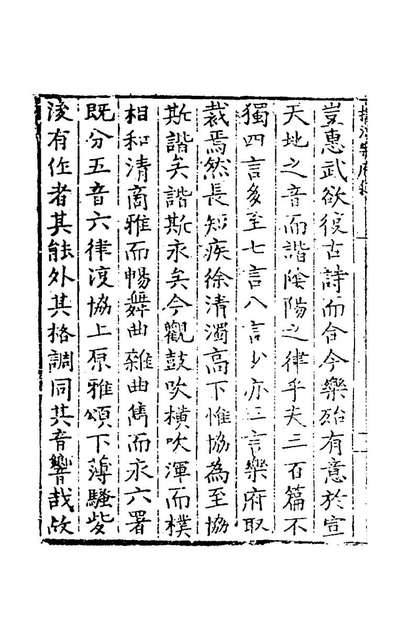 豈惠武欲復古詩而合今樂殆有意於宣
天地之音而諧陰陽之律乎夫三百篇不
獨四言多至七言八言少亦二言樂府取
裁焉然長短疾徐清濁高下惟協為至協
斯諧矣諧斯永矣今觀鼓吹橫吹渾而樸
相和清商雅而暢舞曲雜曲雋而永六署
既分五音六律浸協上原雅頌下薄騷些
後有作者其能外其格調同其音響哉故